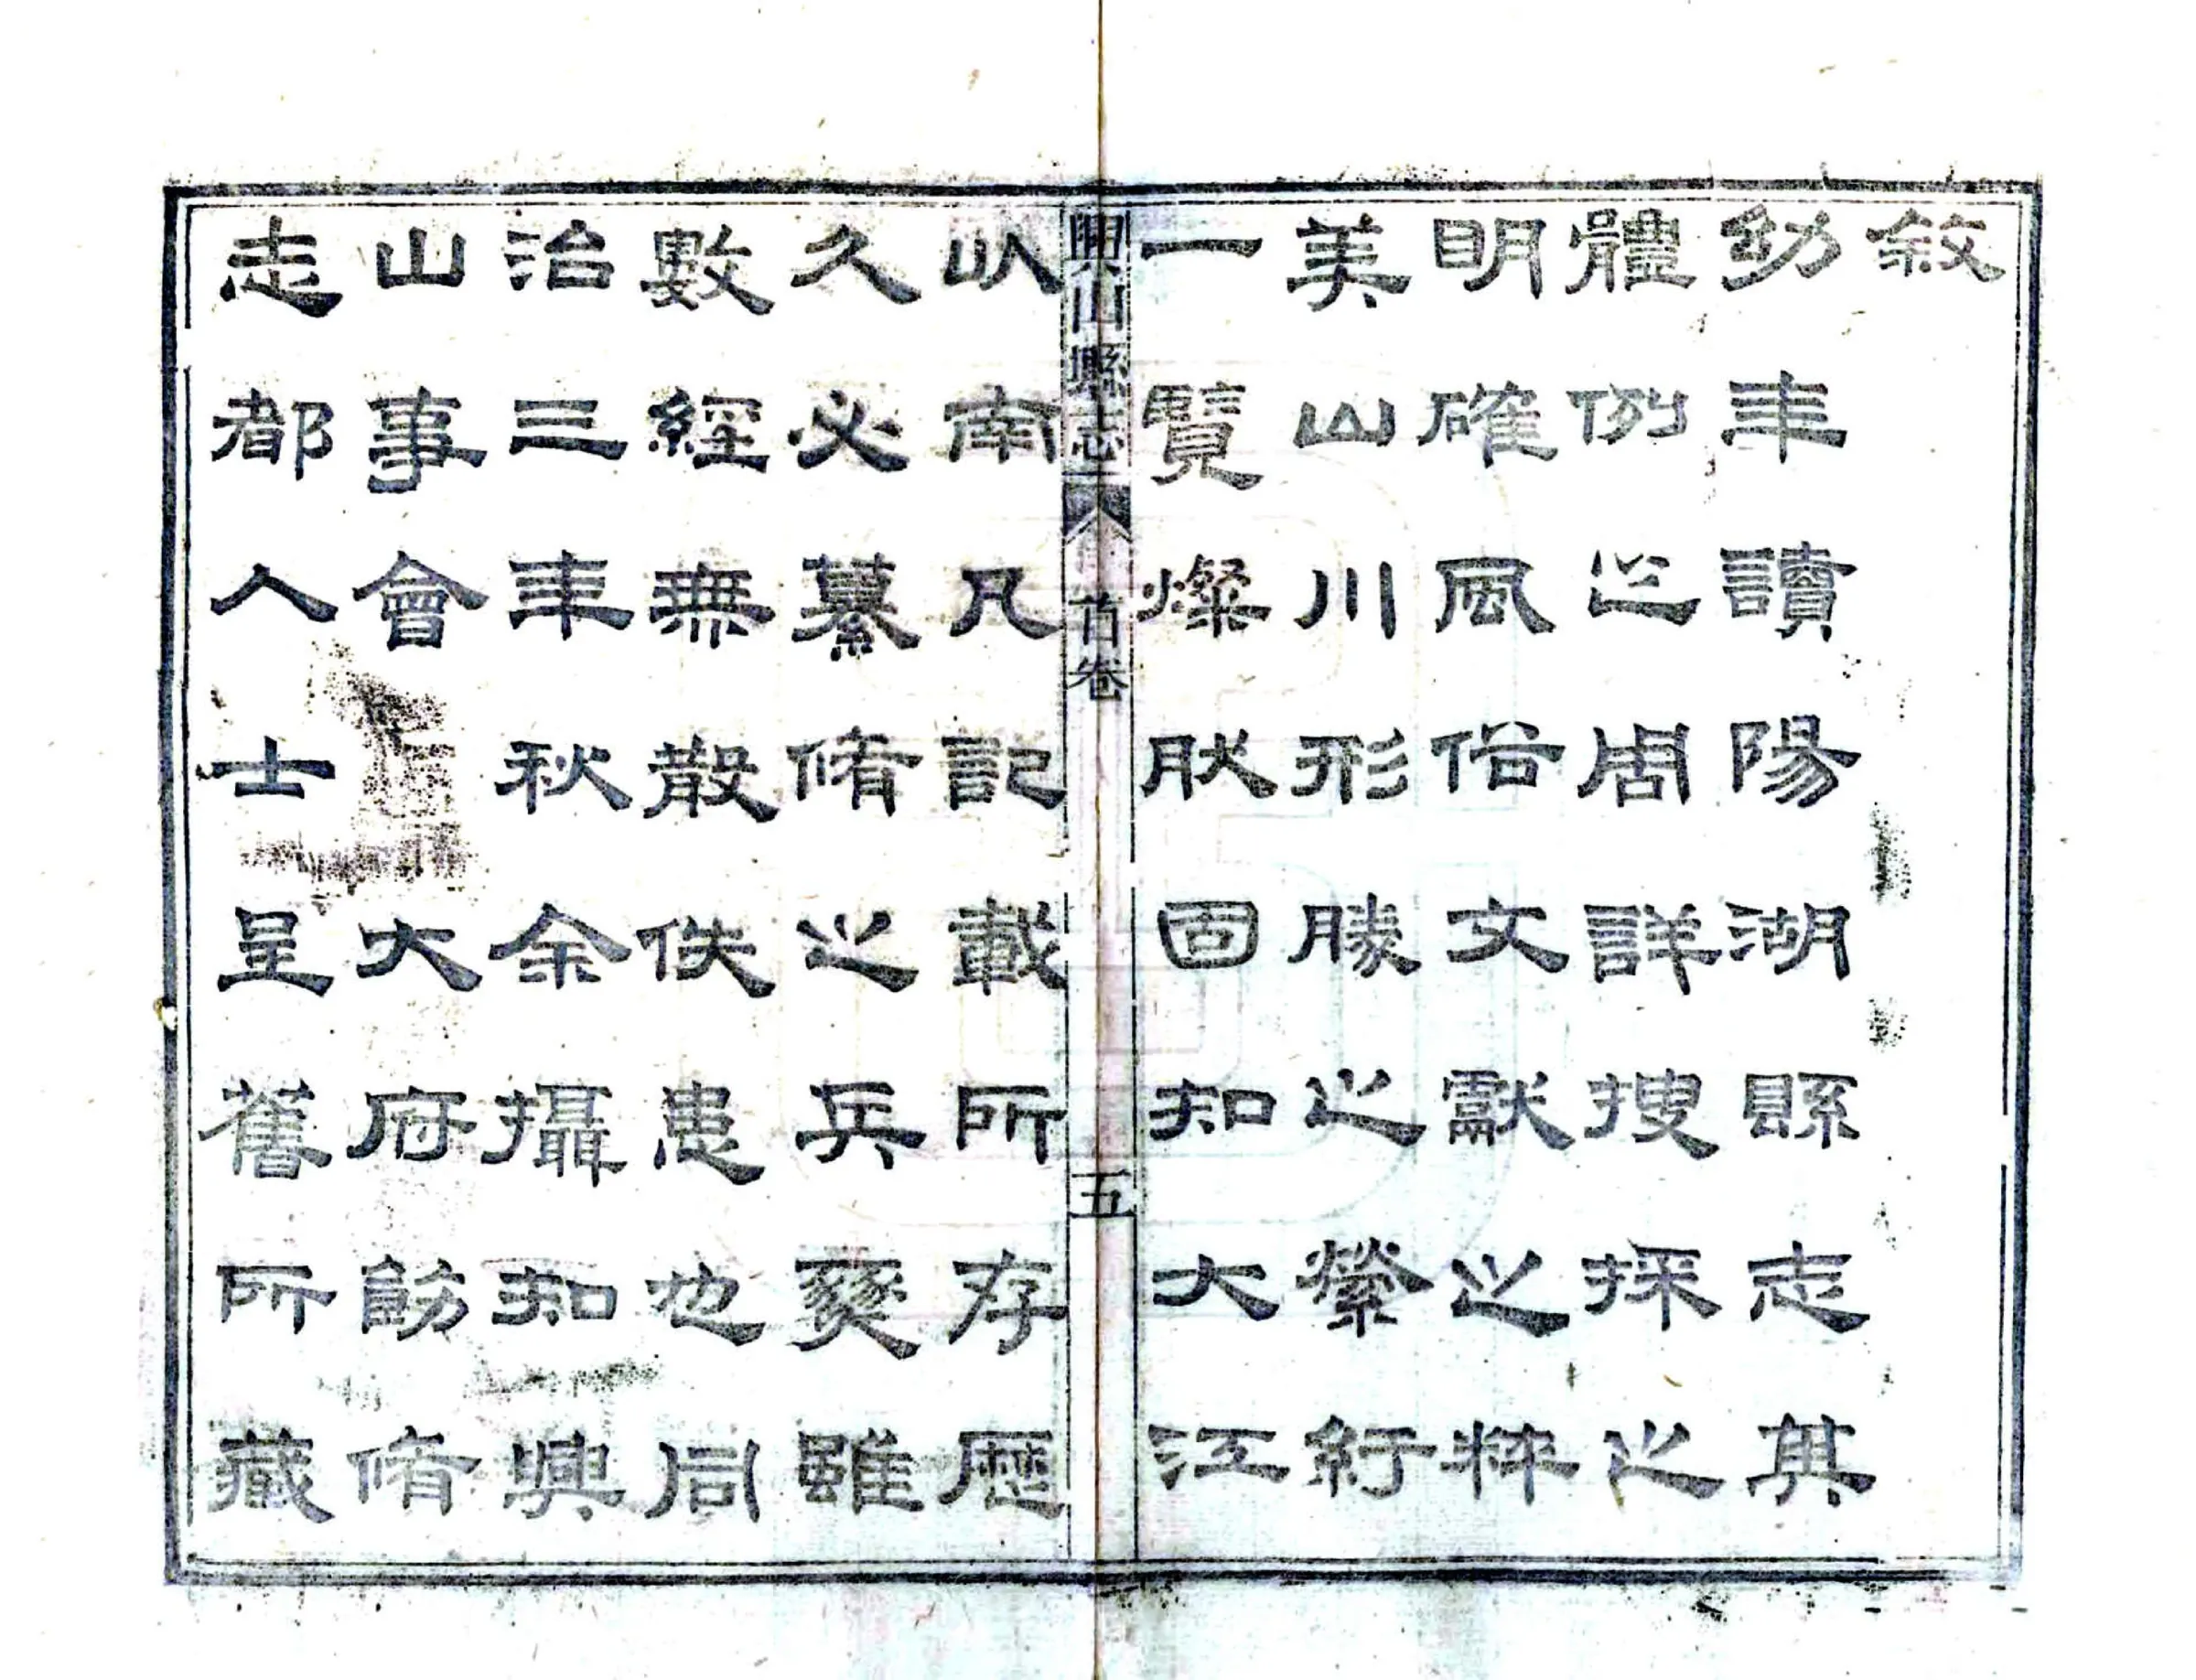 敘
幼年讀陽湖縣志其
體例之周詳搜採之
明確風俗文獻之粹
美山川形勝之縈紆
一覽燦肰固知大江
興山縣志 首卷 五
以南凡記載所存歷
久必纂脩之兵燹雖
數經無散佚患也同
治三年秋余攝知興
山事會 大府飭脩
志都人士呈舊所藏